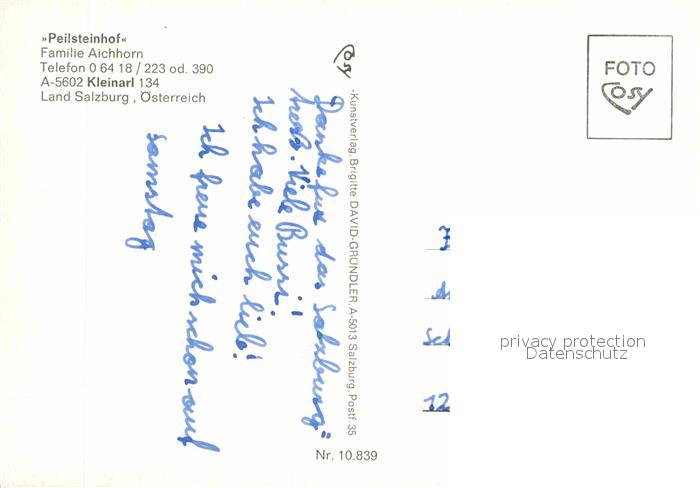 »Peilsteinhof«
Familie Aichhorn
Telefon 0 64 18 / 223 od. 390
A-5602 Kleinarl 134
Land Salzburg, Österreich
Cosy
-Kunstverlag, Brigitte DAVID-GRÜNDLER, A-5013 Salzburg, Postf. 35
Danke für das Salzburg"
Viele Bussi!
Ich habe euch lieb!
Ich freue mich schon auf
samstag
FOTO
Cosy
12
privacy protection
Datenschutz
Nr. 10.839